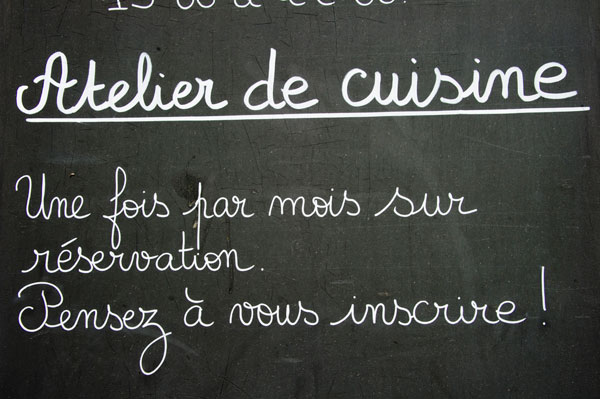 Atelier de cuisine
Une fois par mois sur
réservation.
Pensez à vous inscrire !